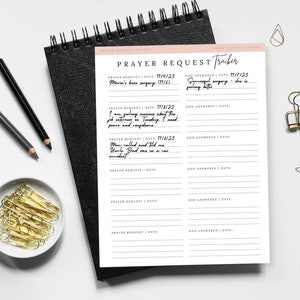 PRAYER REQUEST Tracker
PRAYER REQUEST | DATE: 11/4/23
Maria's knee surgery 11/6
GOD ANSWERED | DATE: 11/9/23
Successful surgery - she is
feeling better
PRAYER REQUEST | DATE: 11/6/23
I am feeling anxious about the
job interview on Tuesday. I need
peace and confidence
GOD ANSWERED | DATE:
PRAYER REQUEST | DATE: 11/8/23
Mom called and told me
Uncle Brad was in a car
accident
GOD ANSWERED | DATE:
PRAYER REQUEST | DATE:
GOD ANSWERED | DATE:
PRAYER REQUEST | DATE:
GOD ANSWERED | DATE:
PRAYER REQUEST | DATE:
GOD ANSWERED | DATE: